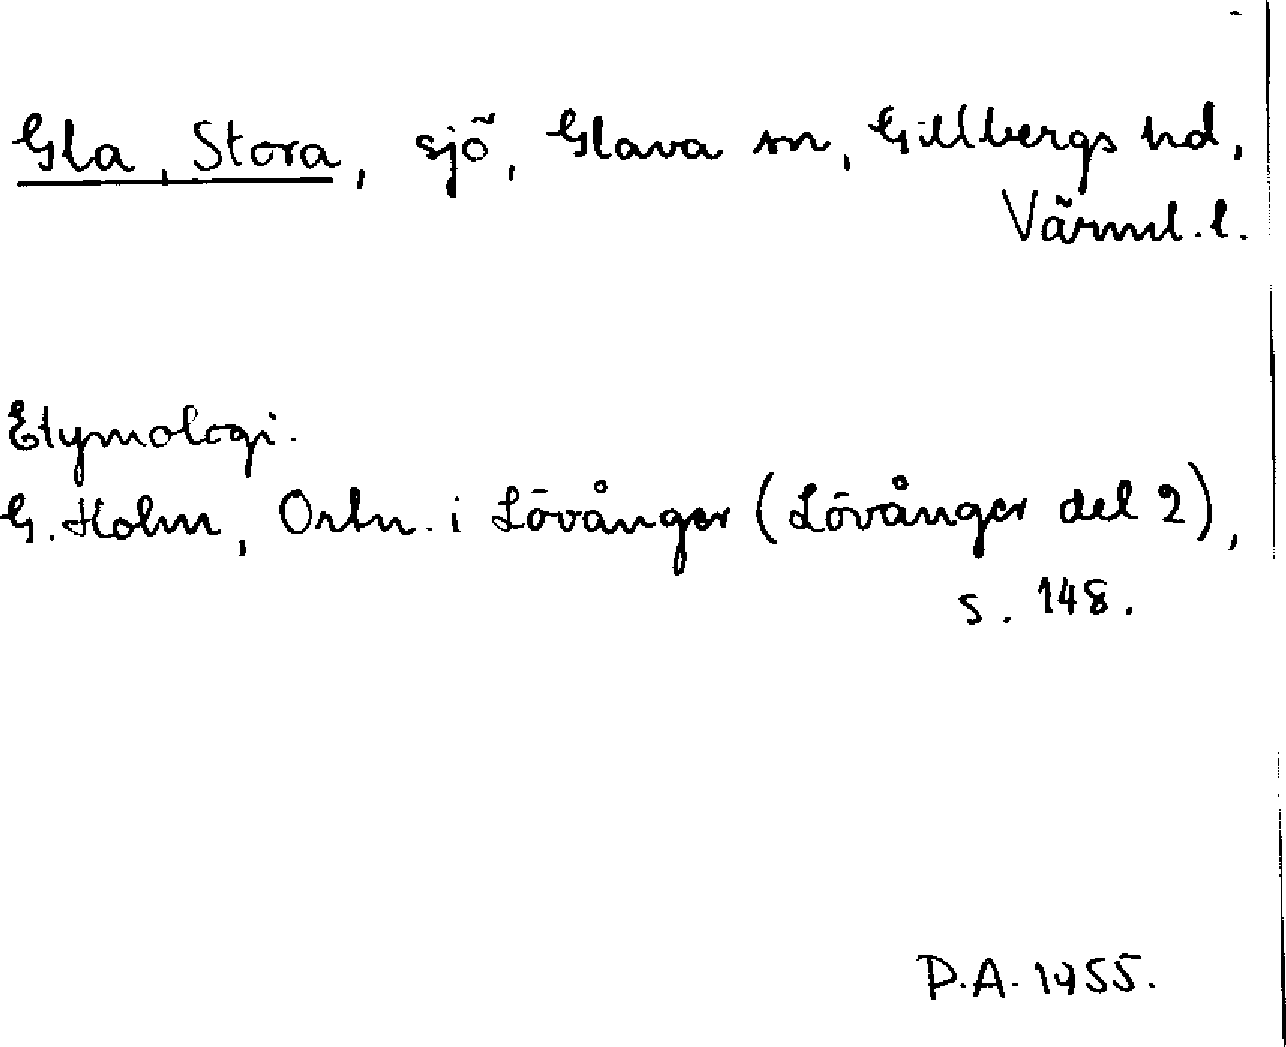 Gla, Stora, sjö, Glava sn, Gillbergs hd,
Värml. l.
Etymologi.
G. Holm, Ortn. i Lövånger (Lövånger del 2),
s. 148.
P.A. 1955.